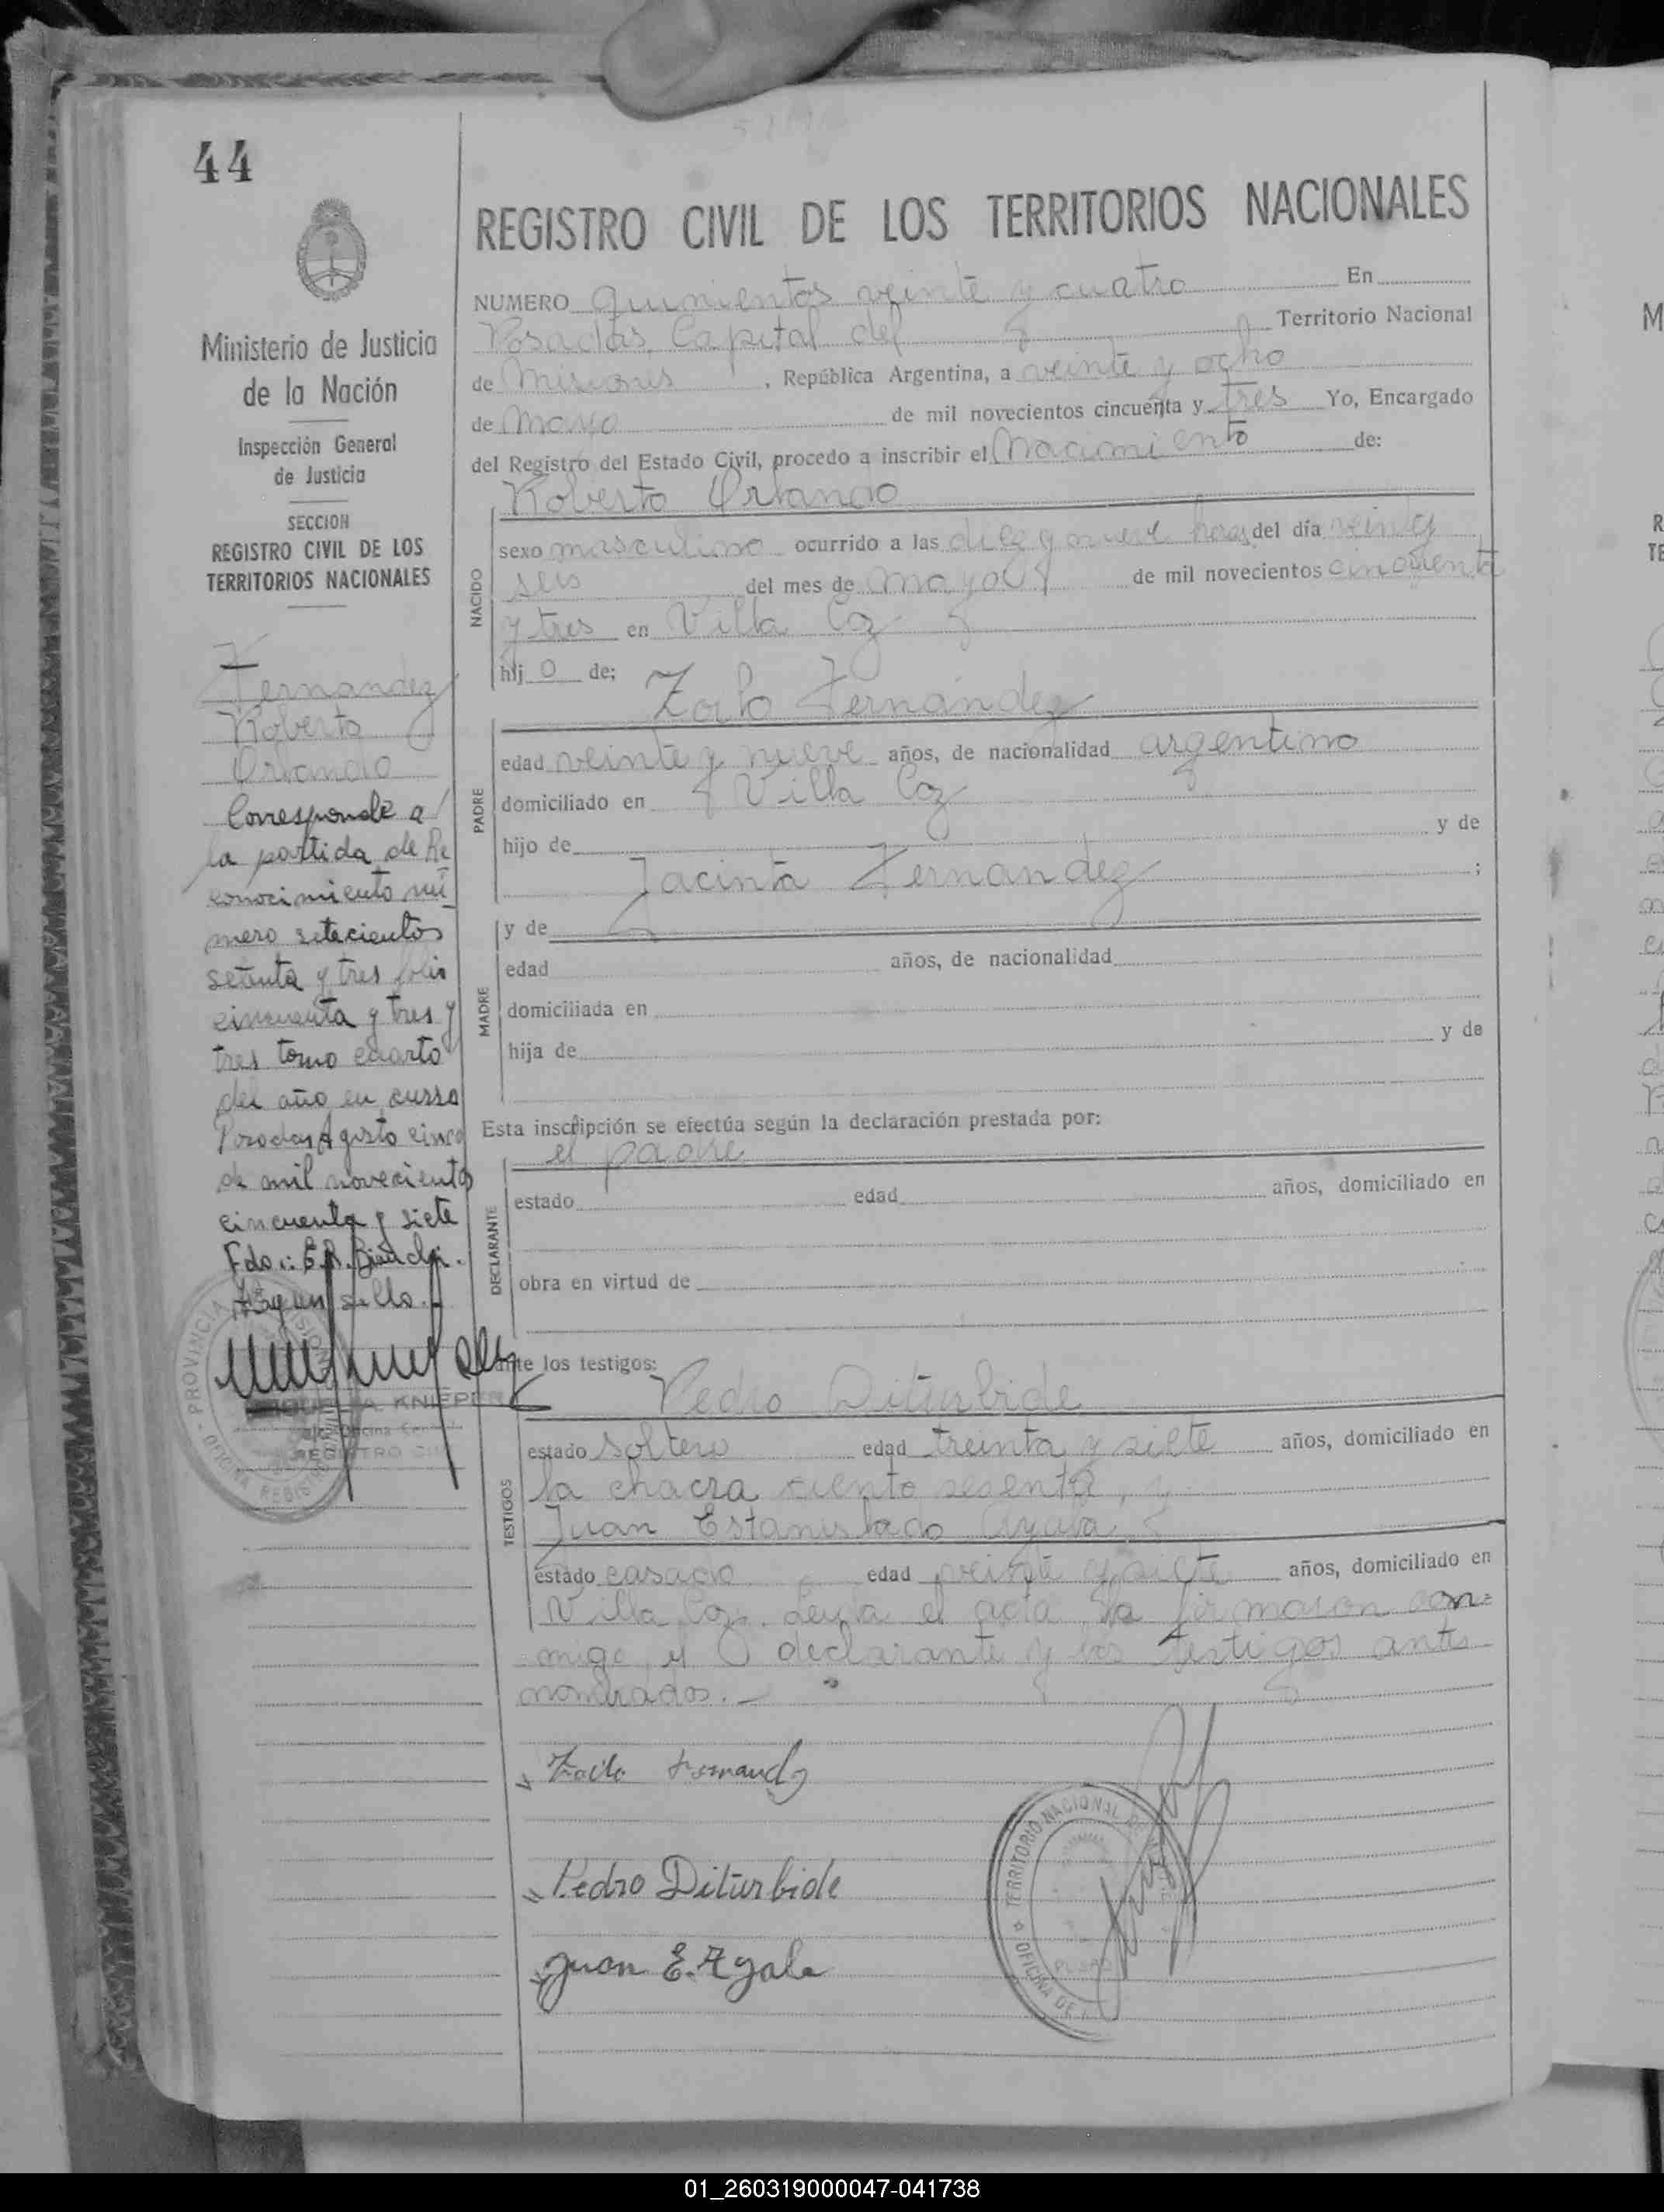 44
Ministerio de Justicia
de la Nación
Inspección General
de Justicia
SECCION
REGISTRO CIVIL DE LOS
TERRITORIOS NACIONALES
Fernandez
Roberto
Orlando
Corresponde a
la partida de Re
conocimiento nú
mero setecientos
setenta y tres folio
cincuenta y tres y
tres tomo cuarto
del año en curso
Posadas Agosto cinco
de mil novecientos
cincuenta y siete
Fdo.: E.R.
Hay un sello.
PROVINCIA
KNIEPER
REGISTRO
REGISTRO CIVIL DE LOS TERRITORIOS NACIONALES
NUMERO quinientos veinte y cuatro En
Posadas, Capital del Territorio Nacional
de Misiones, República Argentina, a veinte y ocho
de mayo de mil novecientos cincuenta y tres Yo, Encargado
del Registro del Estado Civil, procedo a inscribir el Nacimiento de:
Roberto Orlando
NACIDO
sexo masculino ocurrido a las diez y nueve horas del día veinty
seis del mes de mayo de mil novecientos cincuenta
y tres en Villa Coz
hijo de:
Zoilo Fernández
PADRE
edad veinte y nueve años, de nacionalidad argentino
domiciliado en Villa Coz
hijo de y de
Jacinta Fernandez ;
MADRE
y de
edad años, de nacionalidad
domiciliada en
hija de y de
Esta inscripción se efectúa según la declaración prestada por:
el padre
DECLARANTE
estado edad años, domiciliado en
obra en virtud de
ante los testigos:
Pedro Diturbide
TESTIGOS
estado soltero edad treinta y siete años, domiciliado en
la chacra ciento sesenta, y
Juan Estanislado Ayala
estado casado edad veinte y siete años, domiciliado en
Villa Coz. Leida el acta la firmaron con=
migo, el declarante y los testigos antes
nombrados.—
Zoilo Fernandez
Pedro Diturbide
Juan E. Ayala
TERRITORIO NACIONAL DE
OFICINA DE
01_260319000047-041738